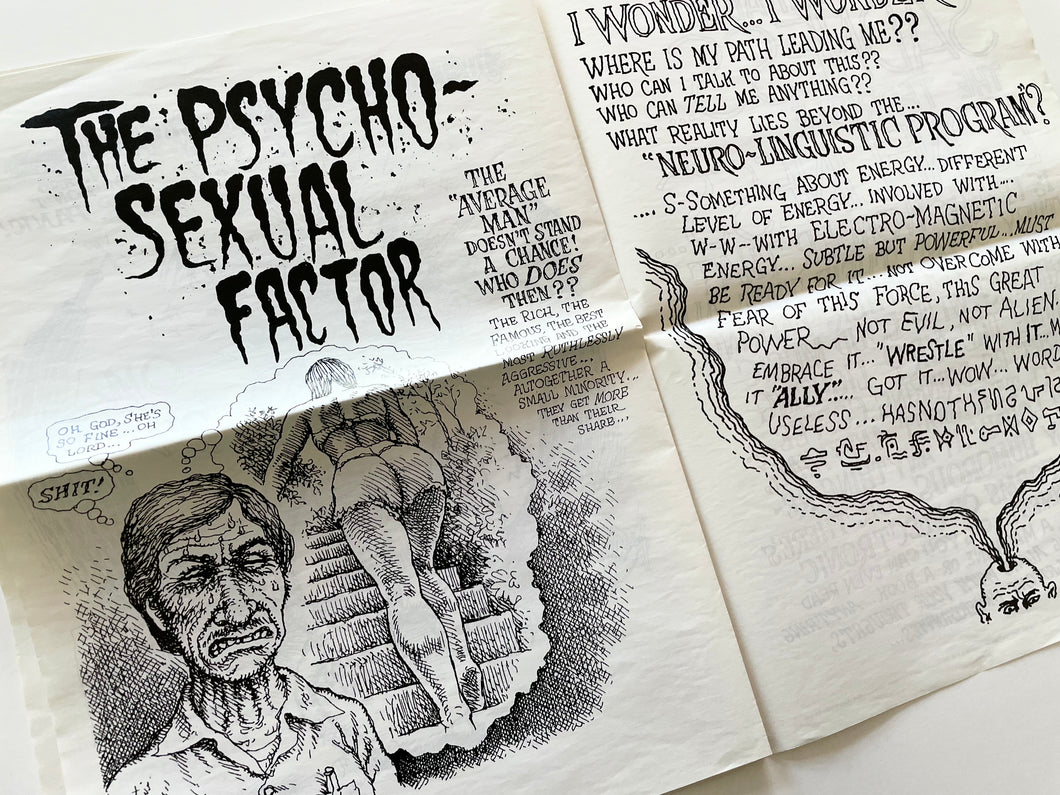 THE PSYCHO-
SEXUAL
FACTOR
THE
"AVERAGE
MAN"
DOESN'T STAND
A CHANCE!
WHO DOES
THEN??
THE RICH, THE
FAMOUS, THE BEST
LOOKING AND THE
MOST RUTHLESSLY
AGGRESSIVE...
ALTOGETHER A
SMALL MINORITY...
THEY GET MORE
THAN THEIR
SHARE...
OH GOD, SHE'S
SO FINE... OH
LORD...
SHIT!
I WONDER... I WONDER
WHERE IS MY PATH LEADING ME??
WHO CAN I TALK TO ABOUT THIS??
WHO CAN TELL ME ANYTHING??
WHAT REALITY LIES BEYOND THE...
"NEURO-LINGUISTIC PROGRAM"?
.... S-SOMETHING ABOUT ENERGY... DIFFERENT
LEVEL OF ENERGY... INVOLVED WITH....
W-W--WITH ELECTRO-MAGNETIC
ENERGY... SUBTLE BUT POWERFUL... MUST
BE READY FOR IT... NOT OVERCOME WITH
FEAR OF THIS FORCE, THIS GREAT
POWER... NOT EVIL, NOT ALIEN
EMBRACE IT... "WRESTLE" WITH IT...
IT "ALLY"..... GOT IT... WOW... WORD
USELESS...